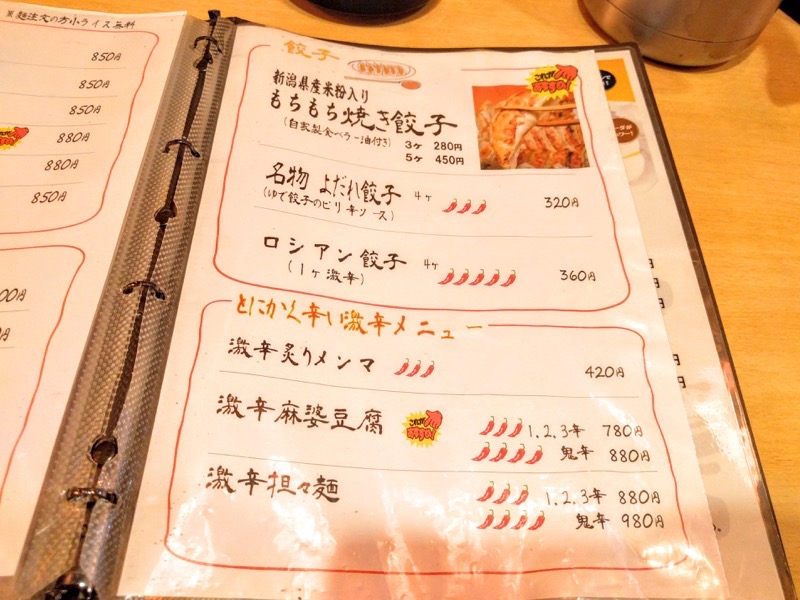 麺注文の方小ライス無料
850円
850円
850円
880円
880円
850円
00円
餃子
新潟県産米粉入り
もちもち焼き餃子
(自家製食べラー油付き)
3ヶ 280円
5ヶ 450円
これが
おすすめ!
名物 よだれ餃子 4ヶ 320円
(ゆで餃子のピリ辛ソース)
ロシアン餃子 4ヶ 360円
(1ヶ激辛)
とにかく辛い激辛メニュー
激辛炙りメンマ 420円
激辛麻婆豆腐
これが
おすすめ!
1.2.3辛 780円
鬼辛 880円
激辛担々麺
1.2.3辛 880円
鬼辛 980円